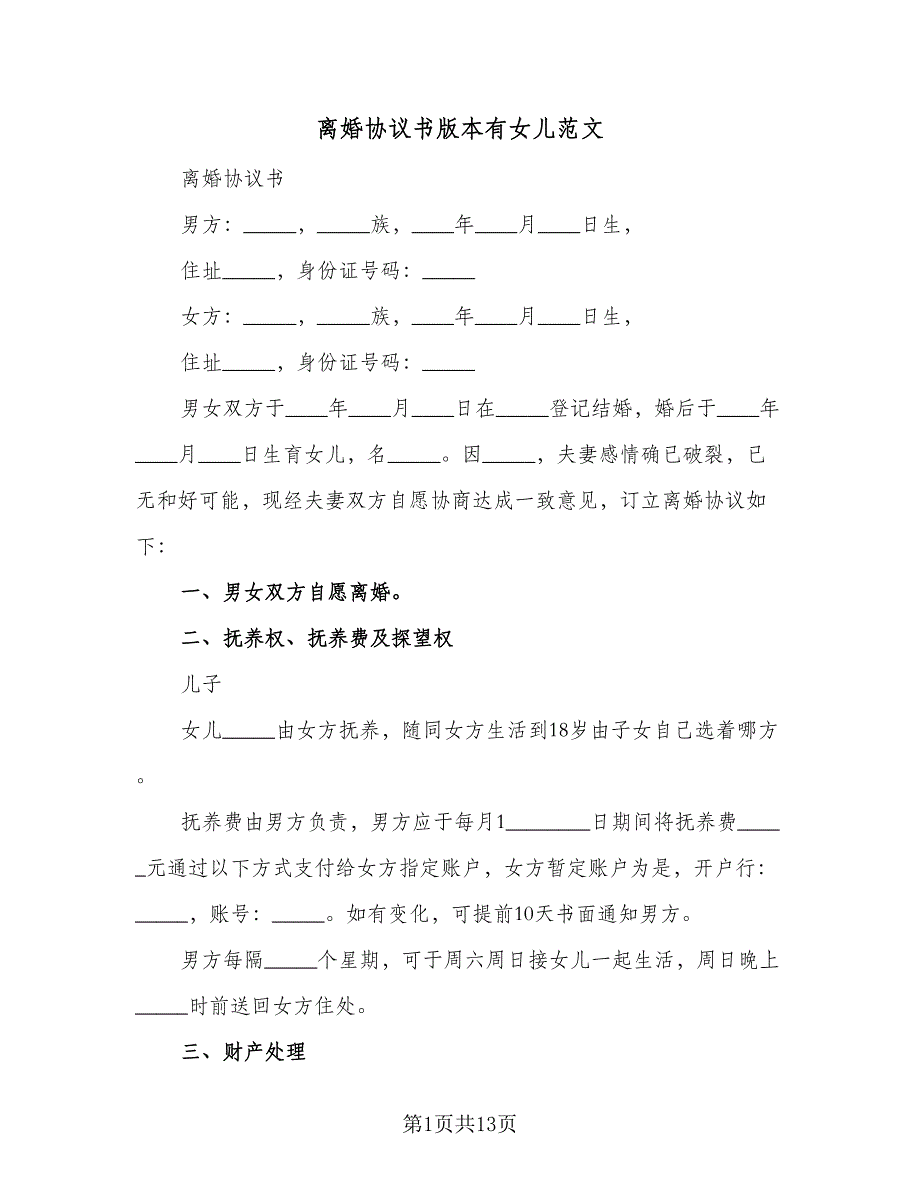 离婚协议书版本有女儿范文
离婚协议书
男方：_____，_____族，____年____月____日生，
住址_____，身份证号码：_____
女方：_____，_____族，____年____月____日生，
住址_____，身份证号码：_____
男女双方于____年____月____日在_____登记结婚，婚后于____年
____月____日生育女儿，名_____。因_____，夫妻感情确已破裂，已
无和好可能，现经夫妻双方自愿协商达成一致意见，订立离婚协议如
下：
一、男女双方自愿离婚。
二、抚养权、抚养费及探望权
儿子
女儿_____由女方抚养，随同女方生活到18岁由子女自己选着哪方
。
抚养费由男方负责，男方应于每月1________日期间将抚养费____
_元通过以下方式支付给女方指定账户，女方暂定账户为是，开户行：
_____，账号：_____。如有变化，可提前10天书面通知男方。
男方每隔_____个星期，可于周六周日接女儿一起生活，周日晚上
_____时前送回女方住处。
三、财产处理
第1页共13页